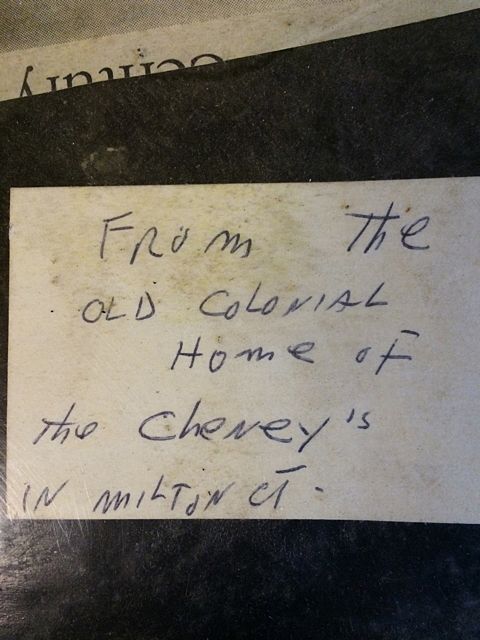 Century
From The
OLD COLONIAL
Home of
the Cheney's
IN MILTON CT.